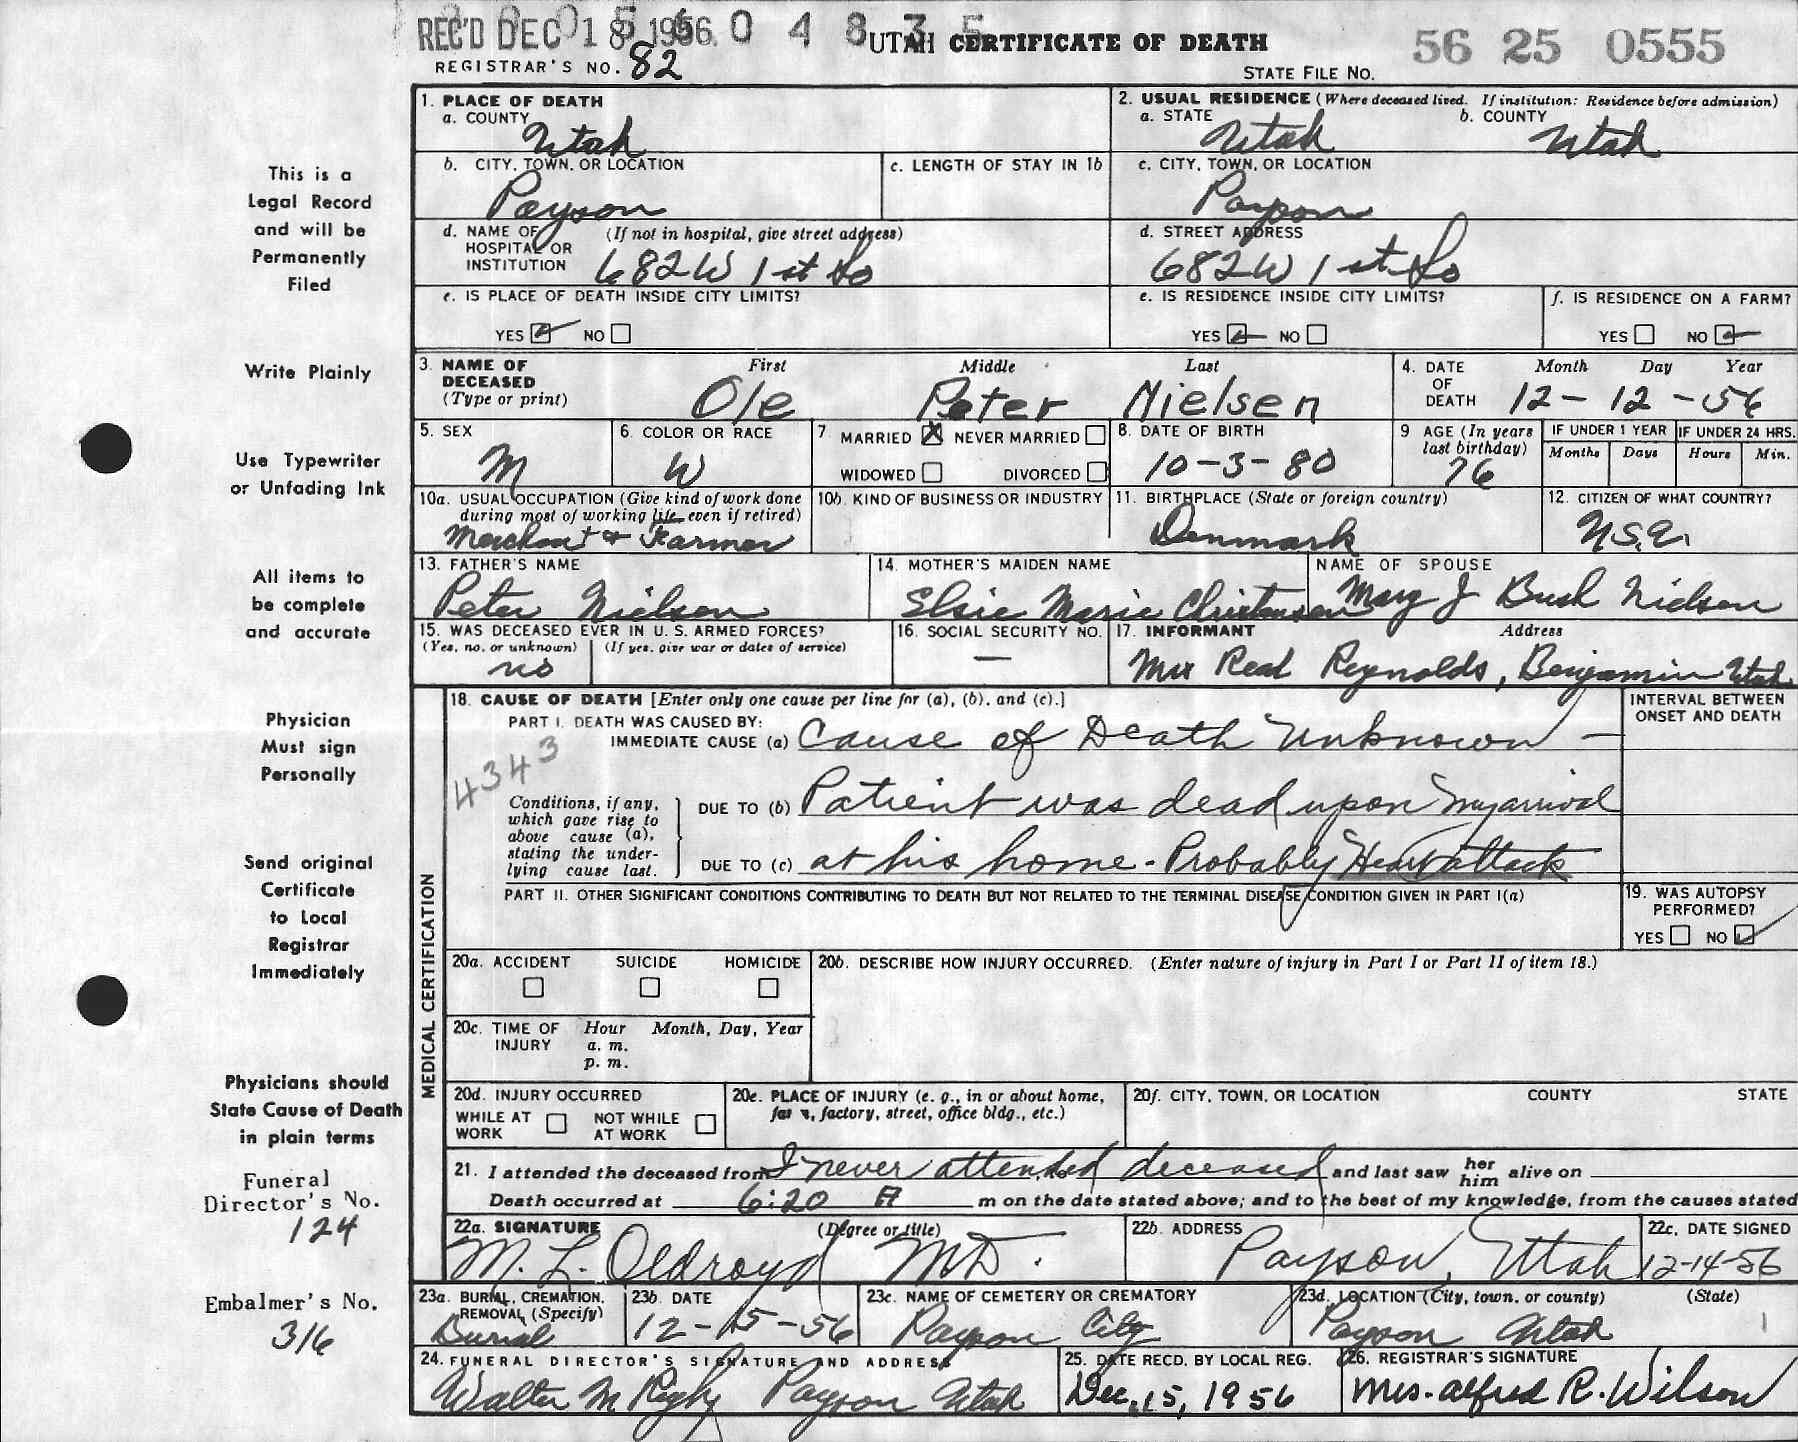 REC'D DEC 18 1956
04835
UTAH CERTIFICATE OF DEATH
56 25 0555
REGISTRAR'S NO. 82
STATE FILE NO.
This is a
Legal Record
and will be
Permanently
Filed
Write Plainly
Use Typewriter
or Unfading Ink
All items to
be complete
and accurate
Physician
Must sign
Personally
Send original
Certificate
to Local
Registrar
Immediately
Physicians should
State Cause of Death
in plain terms
Funeral
Director's No.
124
Embalmer's No.
316
1. PLACE OF DEATH
a. COUNTY Utah
2. USUAL RESIDENCE (Where deceased lived. If institution: Residence before admission)
a. STATE Utah b. COUNTY Utah
b. CITY, TOWN, OR LOCATION Payson
c. LENGTH OF STAY IN 1b
c. CITY, TOWN, OR LOCATION Payson
d. NAME OF HOSPITAL OR INSTITUTION (If not in hospital, give street address) 682 W 1st So
d. STREET ADDRESS 682 W 1st So
e. IS PLACE OF DEATH INSIDE CITY LIMITS?
YES NO
e. IS RESIDENCE INSIDE CITY LIMITS?
YES NO
f. IS RESIDENCE ON A FARM?
YES NO
3. NAME OF DECEASED (Type or print) First Middle Last
Ole Peter Nielsen
4. DATE OF DEATH Month Day Year
12-12-56
5. SEX M
6. COLOR OR RACE W
7. MARRIED X NEVER MARRIED
WIDOWED DIVORCED
8. DATE OF BIRTH 10-3-80
9 AGE (In years last birthday) 76
IF UNDER 1 YEAR Months Days
IF UNDER 24 HRS. Hours Min.
10a. USUAL OCCUPATION (Give kind of work done during most of working life, even if retired)
Merchant & Farmer
10b. KIND OF BUSINESS OR INDUSTRY
11. BIRTHPLACE (State or foreign country)
Denmark
12. CITIZEN OF WHAT COUNTRY?
U.S.A.
13. FATHER'S NAME
Peter Nielson
14. MOTHER'S MAIDEN NAME
Elsie Marie Christensen
NAME OF SPOUSE
Mary J Bush Nielson
15. WAS DECEASED EVER IN U. S. ARMED FORCES?
(Yes, no, or unknown) (If yes, give war or dates of service)
no
16. SOCIAL SECURITY NO.
—
17. INFORMANT Address
Mrs Read Reynolds, Benjamin Utah
MEDICAL CERTIFICATION
18. CAUSE OF DEATH [Enter only one cause per line for (a), (b), and (c).]
INTERVAL BETWEEN ONSET AND DEATH
PART I. DEATH WAS CAUSED BY:
IMMEDIATE CAUSE (a) Cause of Death Unknown -
4343
Conditions, if any, which gave rise to above cause (a), stating the underlying cause last.
DUE TO (b) Patient was dead upon my arrival
DUE TO (c) at his home - Probably Heart attack
PART II. OTHER SIGNIFICANT CONDITIONS CONTRIBUTING TO DEATH BUT NOT RELATED TO THE TERMINAL DISEASE CONDITION GIVEN IN PART I(a)
19. WAS AUTOPSY PERFORMED?
YES NO
20a. ACCIDENT SUICIDE HOMICIDE
20b. DESCRIBE HOW INJURY OCCURRED. (Enter nature of injury in Part I or Part II of item 18.)
20c. TIME OF INJURY Hour Month, Day, Year
a. m.
p. m.
20d. INJURY OCCURRED
WHILE AT WORK NOT WHILE AT WORK
20e. PLACE OF INJURY (e. g., in or about home, farm, factory, street, office bldg., etc.)
20f. CITY, TOWN, OR LOCATION COUNTY STATE
21. I attended the deceased from I never attended deceased and last saw her him alive on
Death occurred at 6:20 A m on the date stated above; and to the best of my knowledge, from the causes stated
22a. SIGNATURE (Degree or title)
M. L. Oldroyd MD.
22b. ADDRESS
Payson, Utah
22c. DATE SIGNED
12-14-56
23a. BURIAL, CREMATION, REMOVAL, (Specify)
Burial
23b. DATE
12-15-56
23c. NAME OF CEMETERY OR CREMATORY
Payson City
23d. LOCATION (City, town, or county) (State)
Payson Utah
24. FUNERAL DIRECTOR'S SIGNATURE AND ADDRESS
Walter M Rigby Payson Utah
25. DATE RECD. BY LOCAL REG.
Dec. 15, 1956
26. REGISTRAR'S SIGNATURE
Mrs. Alfred R. Wilson